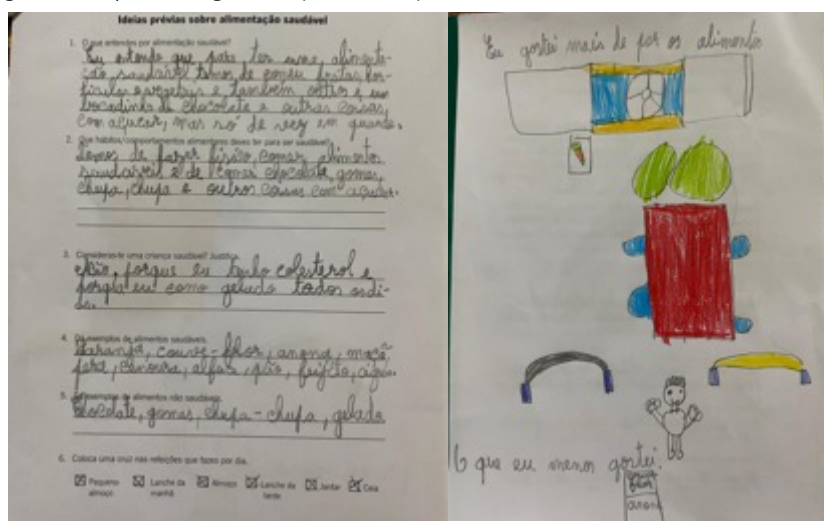 Ideias prévias sobre alimentação saudável
1. O que entendes por alimentação saudável?
Eu entendo que para ter uma alimenta-
ção saudável temos de comer frutas, hor-
tículas e vegetais e também outros e um
bocadinho de chocolate e outras coisas,
com açucar, mas só de vez em quando.
2. Que hábitos/comportamentos alimentares deves ter para ser saudável?
Temos de fazer físico, comer alimentos
saudáveis e de comer chocolate, gomas,
chupa, chupa e outros coisas com açucar.
3. Consideras-te uma criança saudável? Justifica.
Não, porque eu tenho colesterol e
porque eu como gelado todos os di-
as.
4. Dá exemplos de alimentos saudáveis.
Laranja, couve-flor, anona, maçã,
pera, cenoura, alface, pão, feijão, água.
5. Dá exemplos de alimentos não saudáveis.
Chocolate, gomas, chupa-chupa, gelado
6. Coloca uma cruz nas refeições que fazes por dia.
Pequeno almoço Lanche da manhã Almoço Lanche da tarde Jantar Ceia
Eu gostei mais de por os alimentos
O que eu menos gostei.
anona